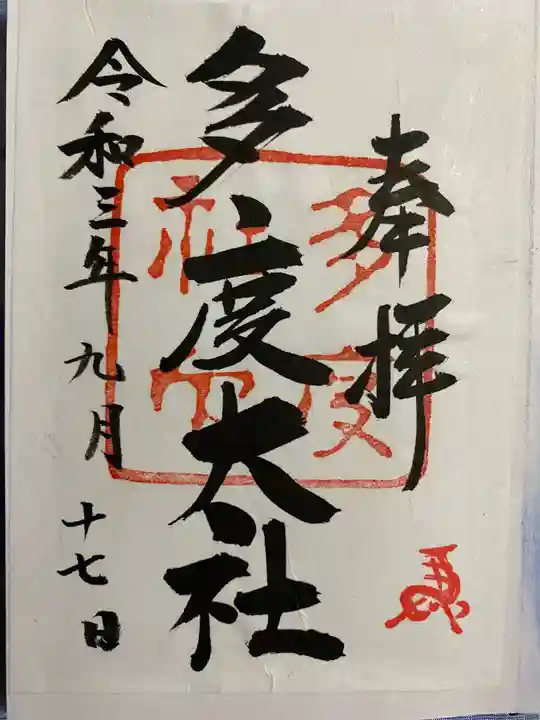 奉拝
多度大社
令和三年九月十七日
多度
社